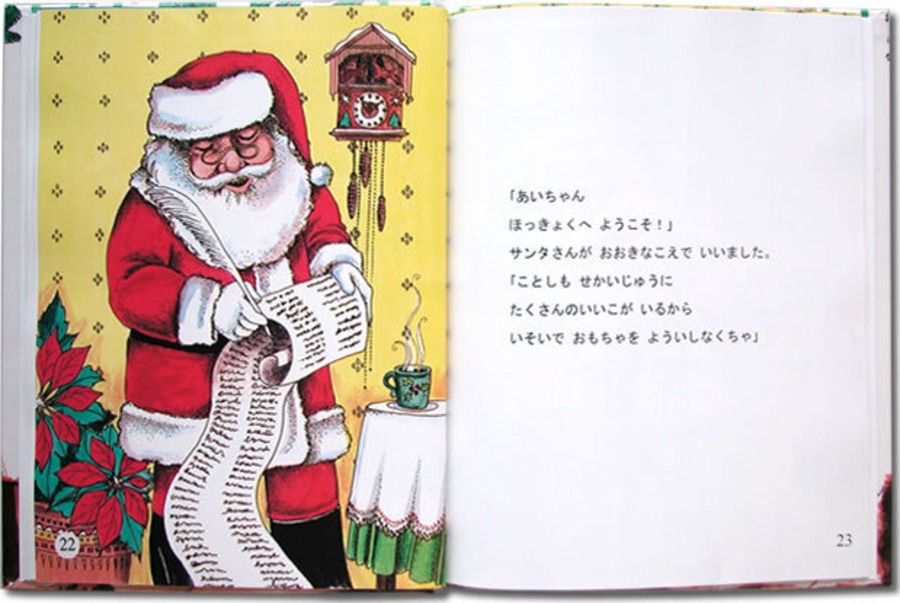 「あいちゃん
ほっきょくへ ようこそ！」
サンタさんが おおきなこえで いいました。
「ことしも せかいじゅうに
たくさんのいいこが いるから
いそいで おもちゃを よういしなくちゃ」
22
23